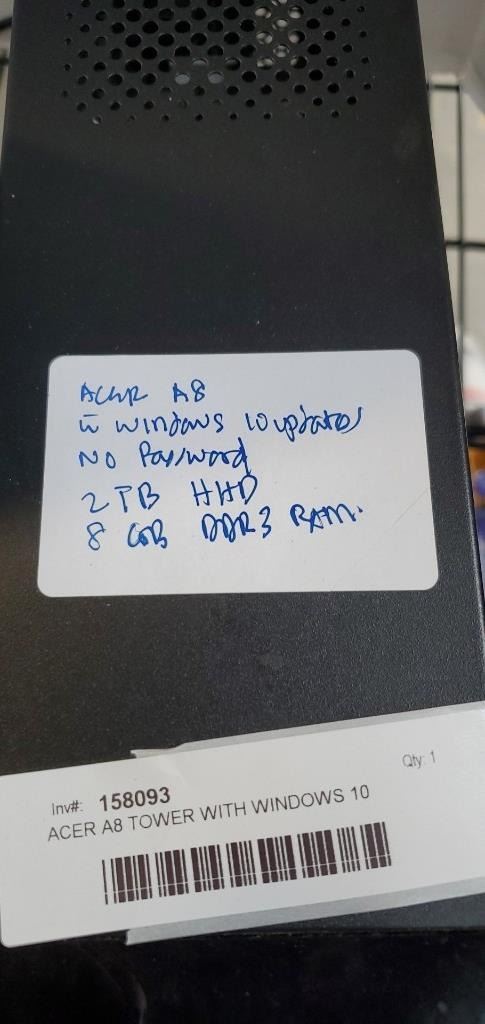 ACER A8
w̄ WINDOWS 10 updates
NO Password
2 TB HHD
8 GB DDR3 RAM.
Qty: 1
Inv#: 158093
ACER A8 TOWER WITH WINDOWS 10